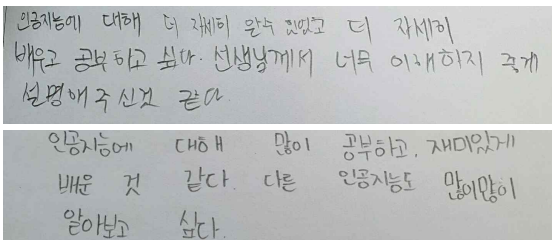 인공지능에 대해 더 자세히 알수 있었고 더 자세히
배우고 공부하고 싶다. 선생님께서 너무 이해하지 좋게
설명해주신것 같다
인공지능에 대해 많이 공부하고, 재미있게
배운 것 같다. 다른 인공지능도 많이많이
알아보고 싶다.